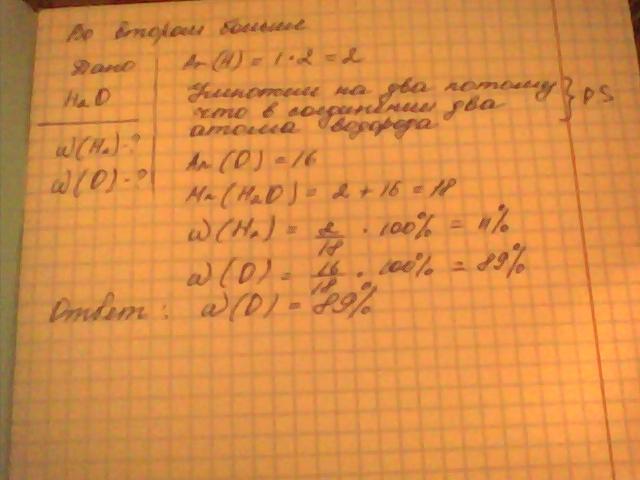 Во втором больше
Дано
Ar(H) = 1·2 = 2
H₂O
Умножили на два потому
что в соединении два
атома водорода
} PS
w(H₂)-?
w(O)-?
Ar(O) = 16
Mr(H₂O) = 2 + 16 = 18
w(H₂) = 2/18 · 100% = 11%
w(O) = 16/18 · 100% = 89%
Ответ: w(O) = 89%